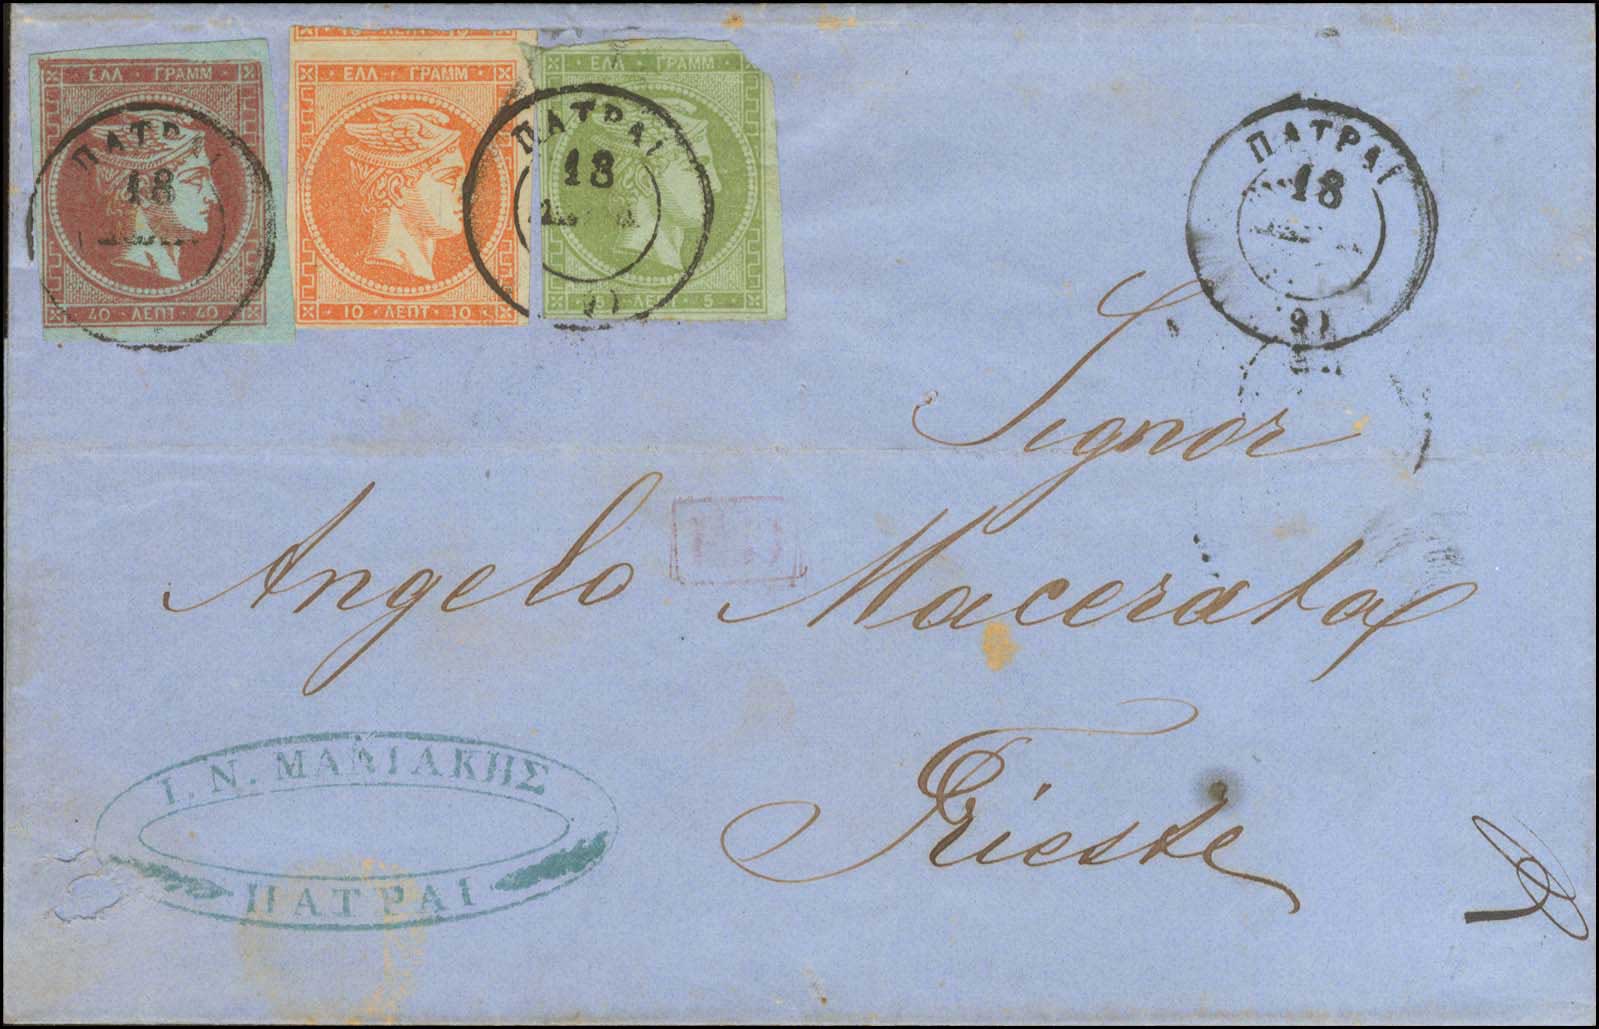 ΕΛΛ · ΓΡΑΜΜ
40 · ΛΕΠΤ · 40
ΕΛΛ · ΓΡΑΜΜ
10 · ΛΕΠΤ · 10
ΕΛΛ · ΓΡΑΜΜ
ΛΕΠΤ · 5
ΠΑΤΡΑΙ
18
ΠΑΤΡΑΙ
18
ΠΑΤΡΑΙ
18
Signor
Angelo Macerata
Trieste
Ι. Ν. ΜΑΛΙΑΚΗΣ
ΠΑΤΡΑΙ